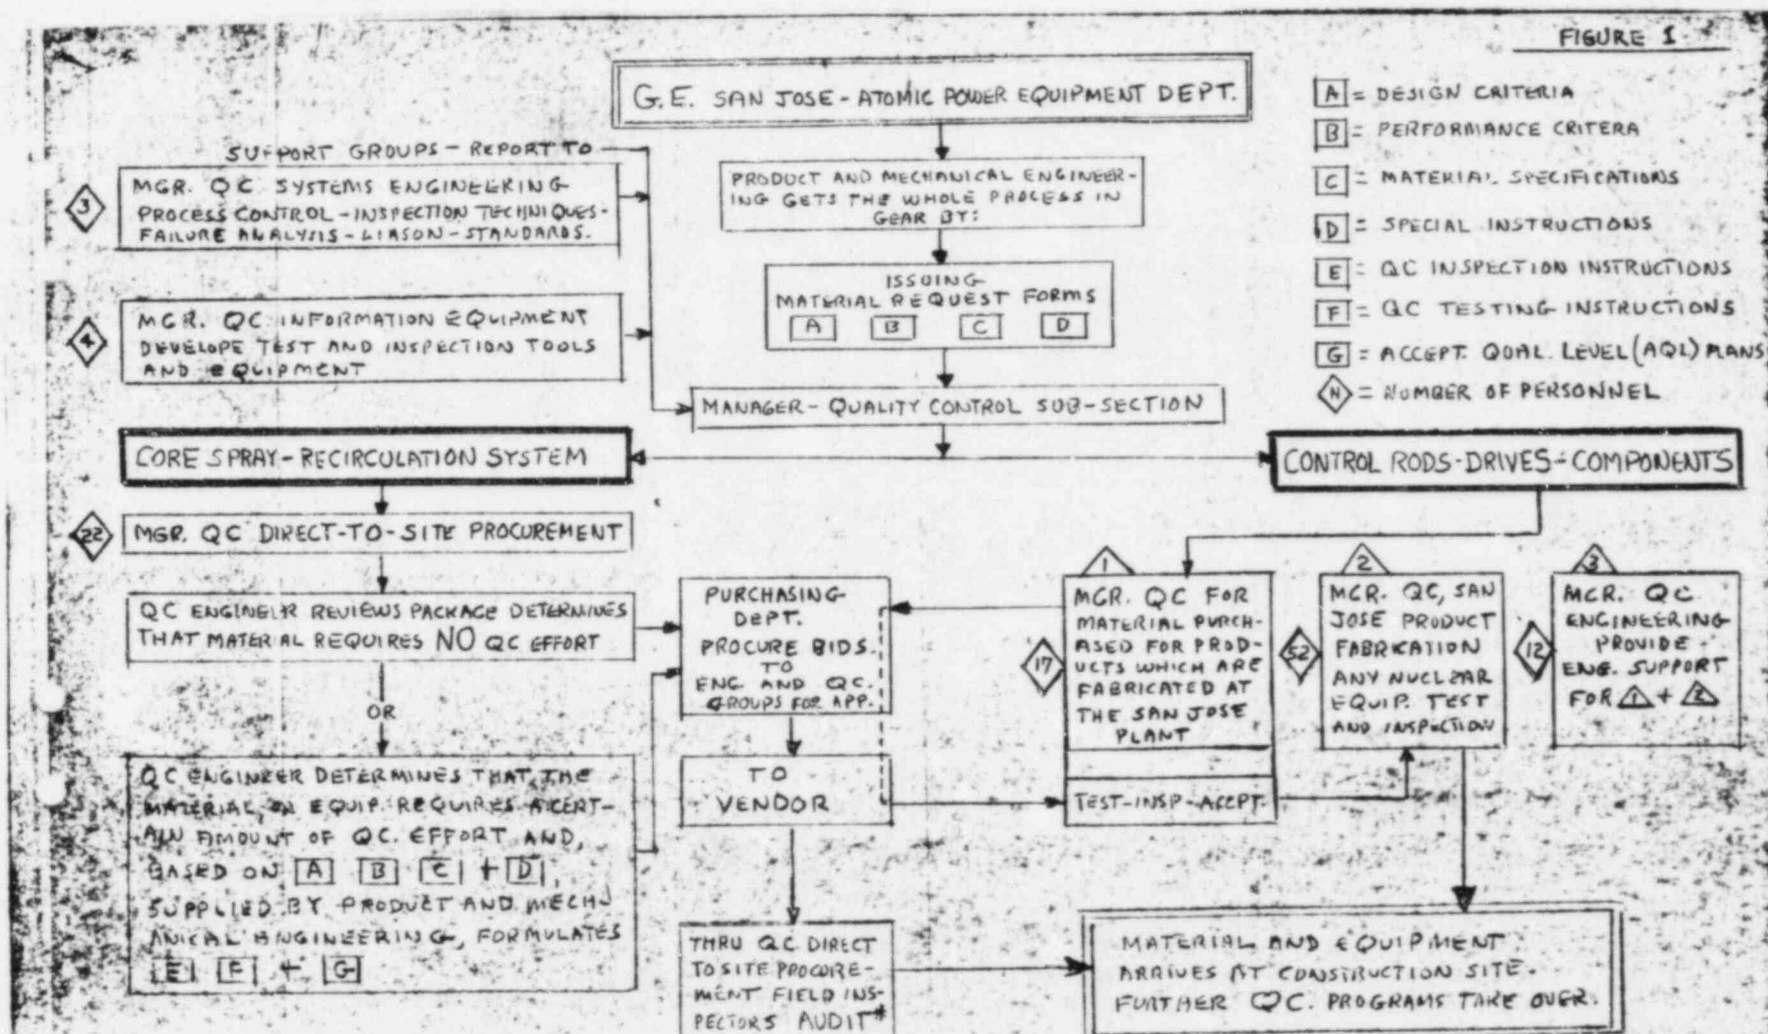 FIGURE 1
G.E. SAN JOSE - ATOMIC POWER EQUIPMENT DEPT.
A = DESIGN CRITERIA
B = PERFORMANCE CRITERA
C = MATERIAL SPECIFICATIONS
D = SPECIAL INSTRUCTIONS
E = QC INSPECTION INSTRUCTIONS
F = QC TESTING INSTRUCTIONS
G = ACCEPT. QUAL. LEVEL (AQL) PLANS
N = NUMBER OF PERSONNEL
SUPPORT GROUPS - REPORT TO
3
MGR. QC SYSTEMS ENGINEERING
PROCESS CONTROL - INSPECTION TECHNIQUES -
FAILURE ANALYSIS - LIASON - STANDARDS.
4
MGR. QC INFORMATION EQUIPMENT
DEVELOPE TEST AND INSPECTION TOOLS
AND EQUIPMENT
PRODUCT AND MECHANICAL ENGINEER-
ING GETS THE WHOLE PROCESS IN
GEAR BY:
ISSUING
MATERIAL REQUEST FORMS
A B C D
MANAGER - QUALITY CONTROL SUB-SECTION
CORE SPRAY - RECIRCULATION SYSTEM
CONTROL RODS - DRIVES - COMPONENTS
22
MGR. QC DIRECT-TO-SITE PROCUREMENT
QC ENGINEER REVIEWS PACKAGE DETERMINES
THAT MATERIAL REQUIRES NO QC EFFORT
OR
QC ENGINEER DETERMINES THAT THE
MATERIAL, OR EQUIP. REQUIRES A CERT-
AIN AMOUNT OF QC. EFFORT AND,
BASED ON A B C + D,
SUPPLIED BY PRODUCT AND MECH-
ANICAL ENGINEERING, FORMULATES
E F + G
PURCHASING
DEPT.
PROCURE BIDS.
TO
ENG. AND QC.
GROUPS FOR APP.
TO
VENDOR
THRU QC DIRECT
TO SITE PROCURE-
MENT FIELD INS-
PECTORS AUDIT*
1
17
MGR. QC FOR
MATERIAL PURCH-
ASED FOR PROD-
UCTS WHICH ARE
FABRICATED AT
THE SAN JOSE
PLANT
TEST-INSP-ACCPT.
2
52
MGR. QC, SAN
JOSE PRODUCT
FABRICATION
ANY NUCLEAR
EQUIP. TEST
AND INSPECTION
3
12
MGR. QC
ENGINEERING
PROVIDE
ENG. SUPPORT
FOR 1 + 2
MATERIAL AND EQUIPMENT
ARRIVES AT CONSTRUCTION SITE.
FURTHER QC. PROGRAMS TAKE OVER.